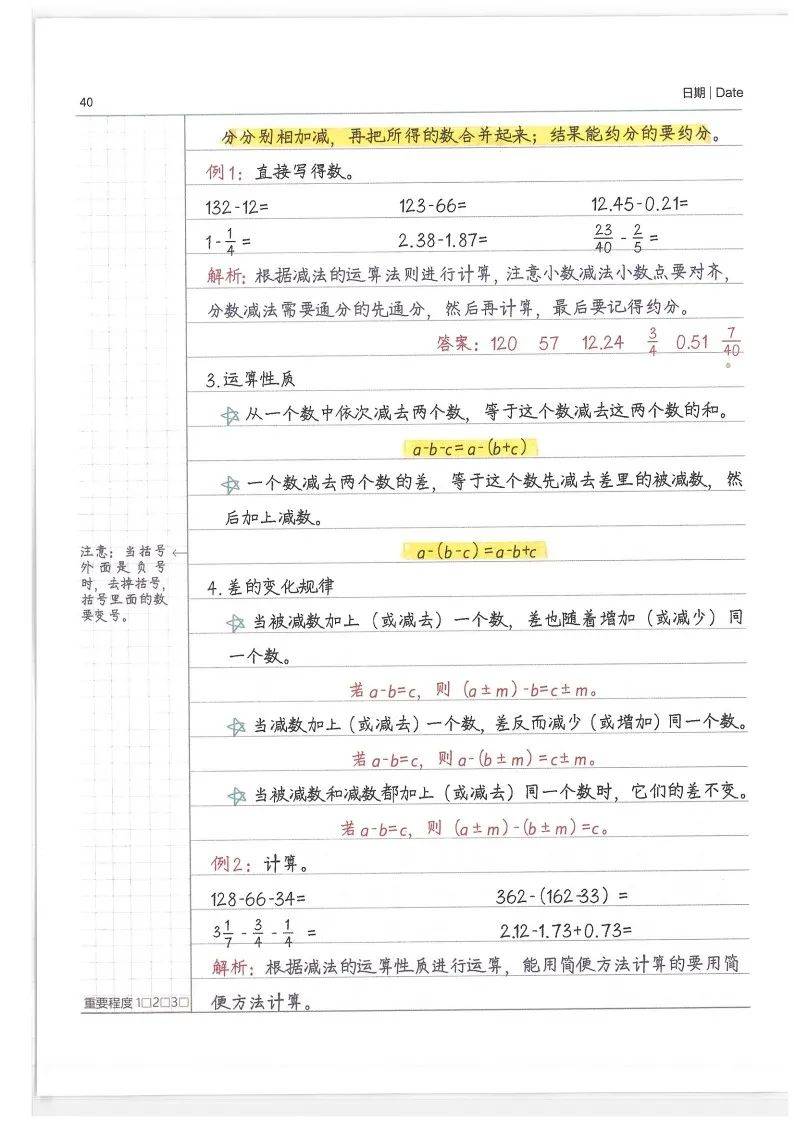 40
日期 | Date
分分别相加减，再把所得的数合并起来；结果能约分的要约分。
例1：直接写得数。
132-12= 123-66= 12.45-0.21=
1-1/4= 2.38-1.87= 23/40-2/5=
解析：根据减法的运算法则进行计算，注意小数减法小数点要对齐，
分数减法需要通分的先通分，然后再计算，最后要记得约分。
答案：120 57 12.24 3/4 0.51 7/40
3.运算性质
从一个数中依次减去两个数，等于这个数减去这两个数的和。
a-b-c=a-(b+c)
一个数减去两个数的差，等于这个数先减去差里的被减数，然
后加上减数。
a-(b-c)=a-b+c
注意：当括号
外面是负号
时，去掉括号，
括号里面的数
要变号。
4.差的变化规律
当被减数加上（或减去）一个数，差也随着增加（或减少）同
一个数。
若a-b=c，则（a±m）-b=c±m。
当减数加上（或减去）一个数，差反而减少（或增加）同一个数。
若a-b=c，则a-（b±m）=c±m。
当被减数和减数都加上（或减去）同一个数时，它们的差不变。
若a-b=c，则（a±m）-（b±m）=c。
例2：计算。
128-66-34= 362-（162-33）=
3 1/7-3/4-1/4= 2.12-1.73+0.73=
解析：根据减法的运算性质进行运算，能用简便方法计算的要用简
便方法计算。
重要程度 1□2□3□